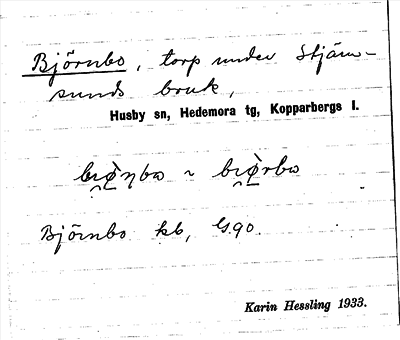 Björnbo, torp under Stjärn-
sunds bruk,
Husby sn, Hedemora tg, Kopparbergs l.
Björnbo kb, G.90.
Karin Hessling 1933.